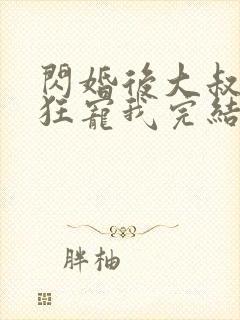 閃婚後大叔
狂寵我完結
胖柚